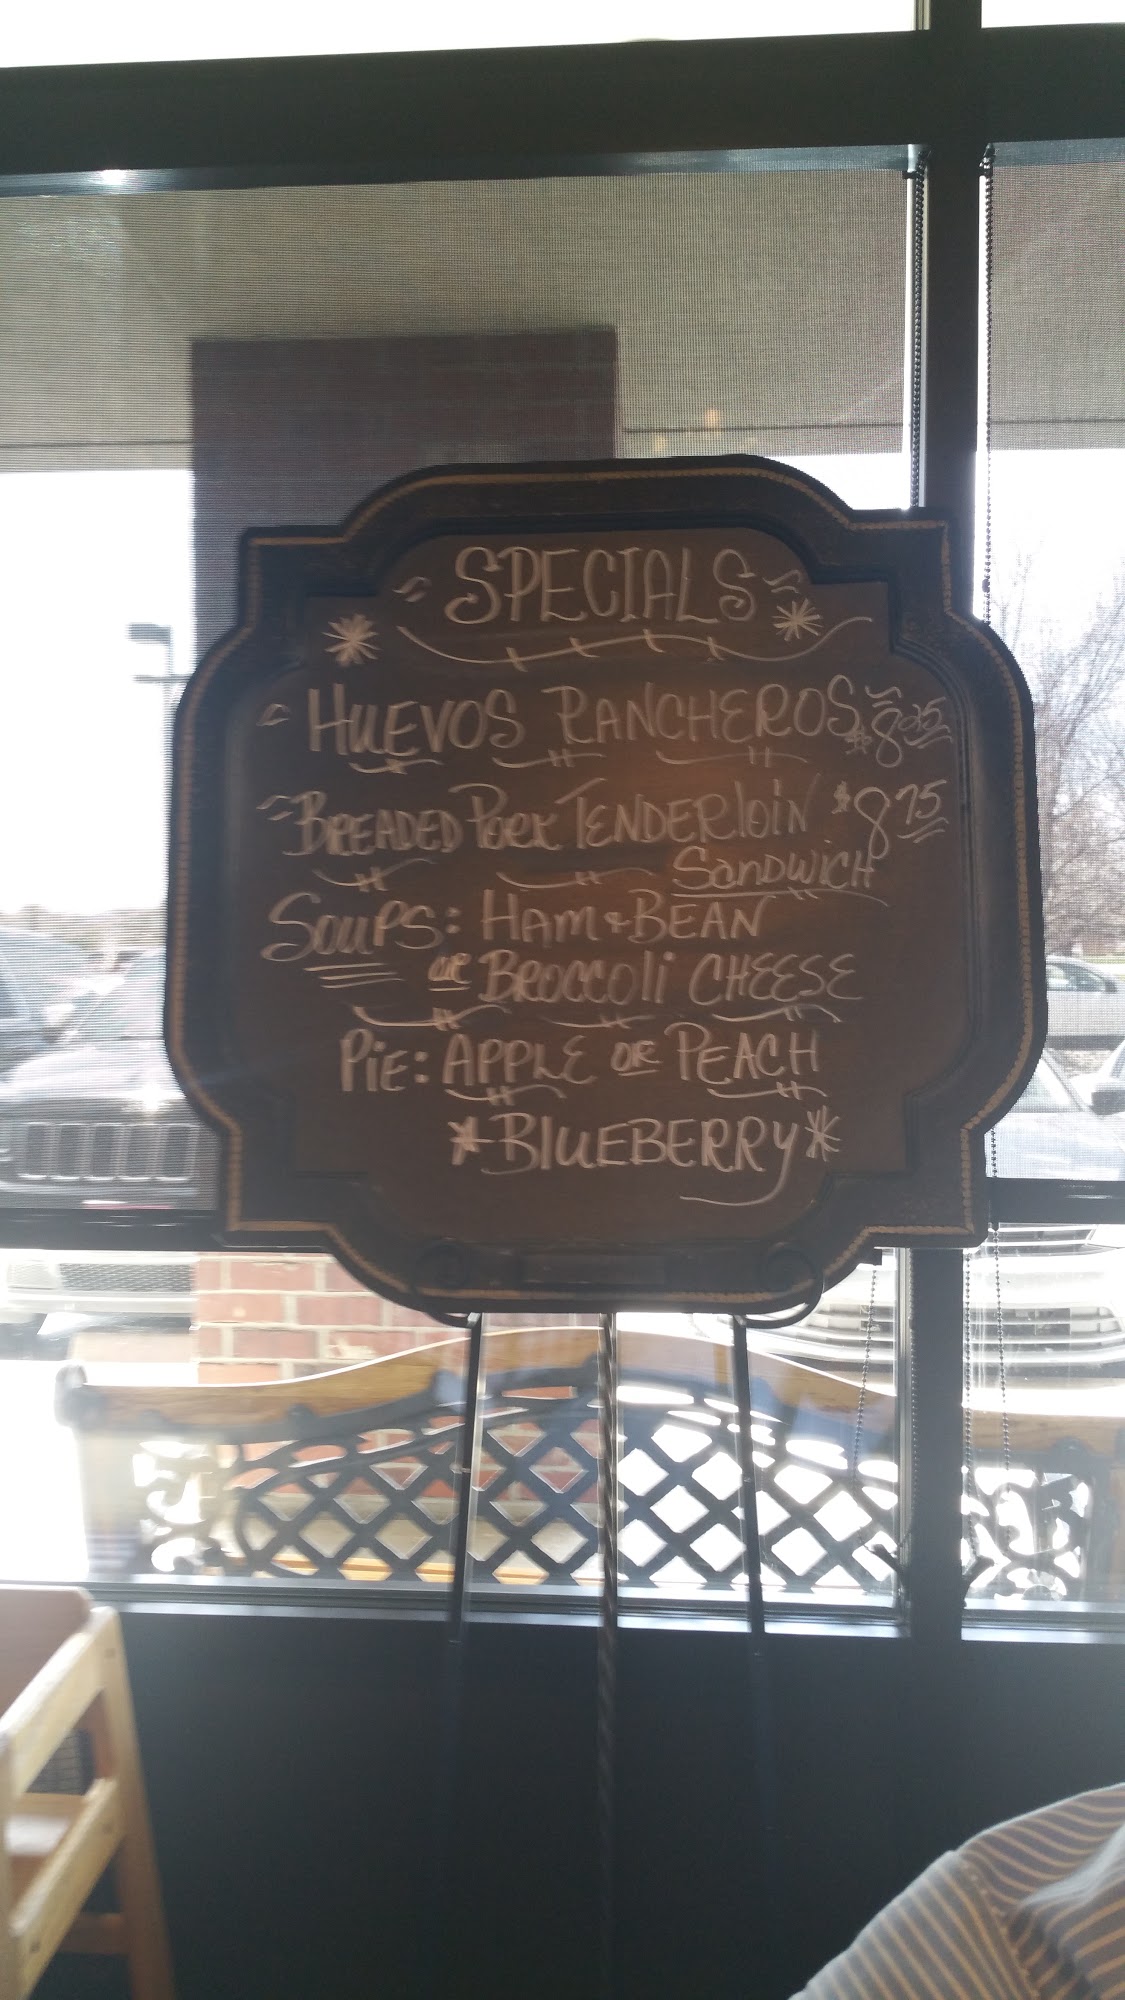 SPECIALS
HUEVOS RANCHEROS $8.25
BREADED PORK TENDERLOIN $8.75
SANDWICH
SOUPS: HAM & BEAN
OR BROCCOLI CHEESE
PIE: APPLE OR PEACH
*BLUEBERRY*